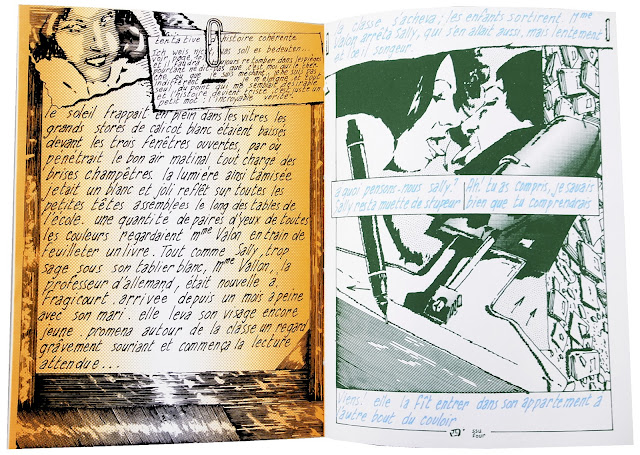 tentative d'histoire cohérente
Ich weis nicht was soll es bedeuten...
le soleil frappait en plein dans les vitres les
grands stores de calicot blanc étaient baissés
devant les trois fenêtres ouvertes, par où
penetrait le bon air matinal tout chargé des
brises champêtres. la lumière ainsi tamisée
jetait un blanc et joli reflet sur toutes les
petites têtes assemblées le long des tables de
l'école. une quantité de paires d'yeux de toutes
les couleurs regardaient Mme Valon en train de
feuilleter un livre. Tout comme Sally, trop
sage sous son tablier blanc, Mme Vallon, la
professeur d'allemand, était nouvelle à
Fragicourt. arrivée depuis un mois a peine
avec son mari. elle leva son visage encore
jeune. promena autour de la classe un regard
gravement souriant et commença la lecture
attendue...
la classe s'acheva; les enfants sortirent. Mme
Valon arrêta Sally, qui s'en allait aussi, mais lentement
et l'œil songeur.
a quoi pensons-nous Sally?
Sally resta muette de stupeur
Ah! tu as compris, je savais
bien que tu comprendrais
Viens! elle la fit entrer dans son appartement à
l'autre bout du couloir